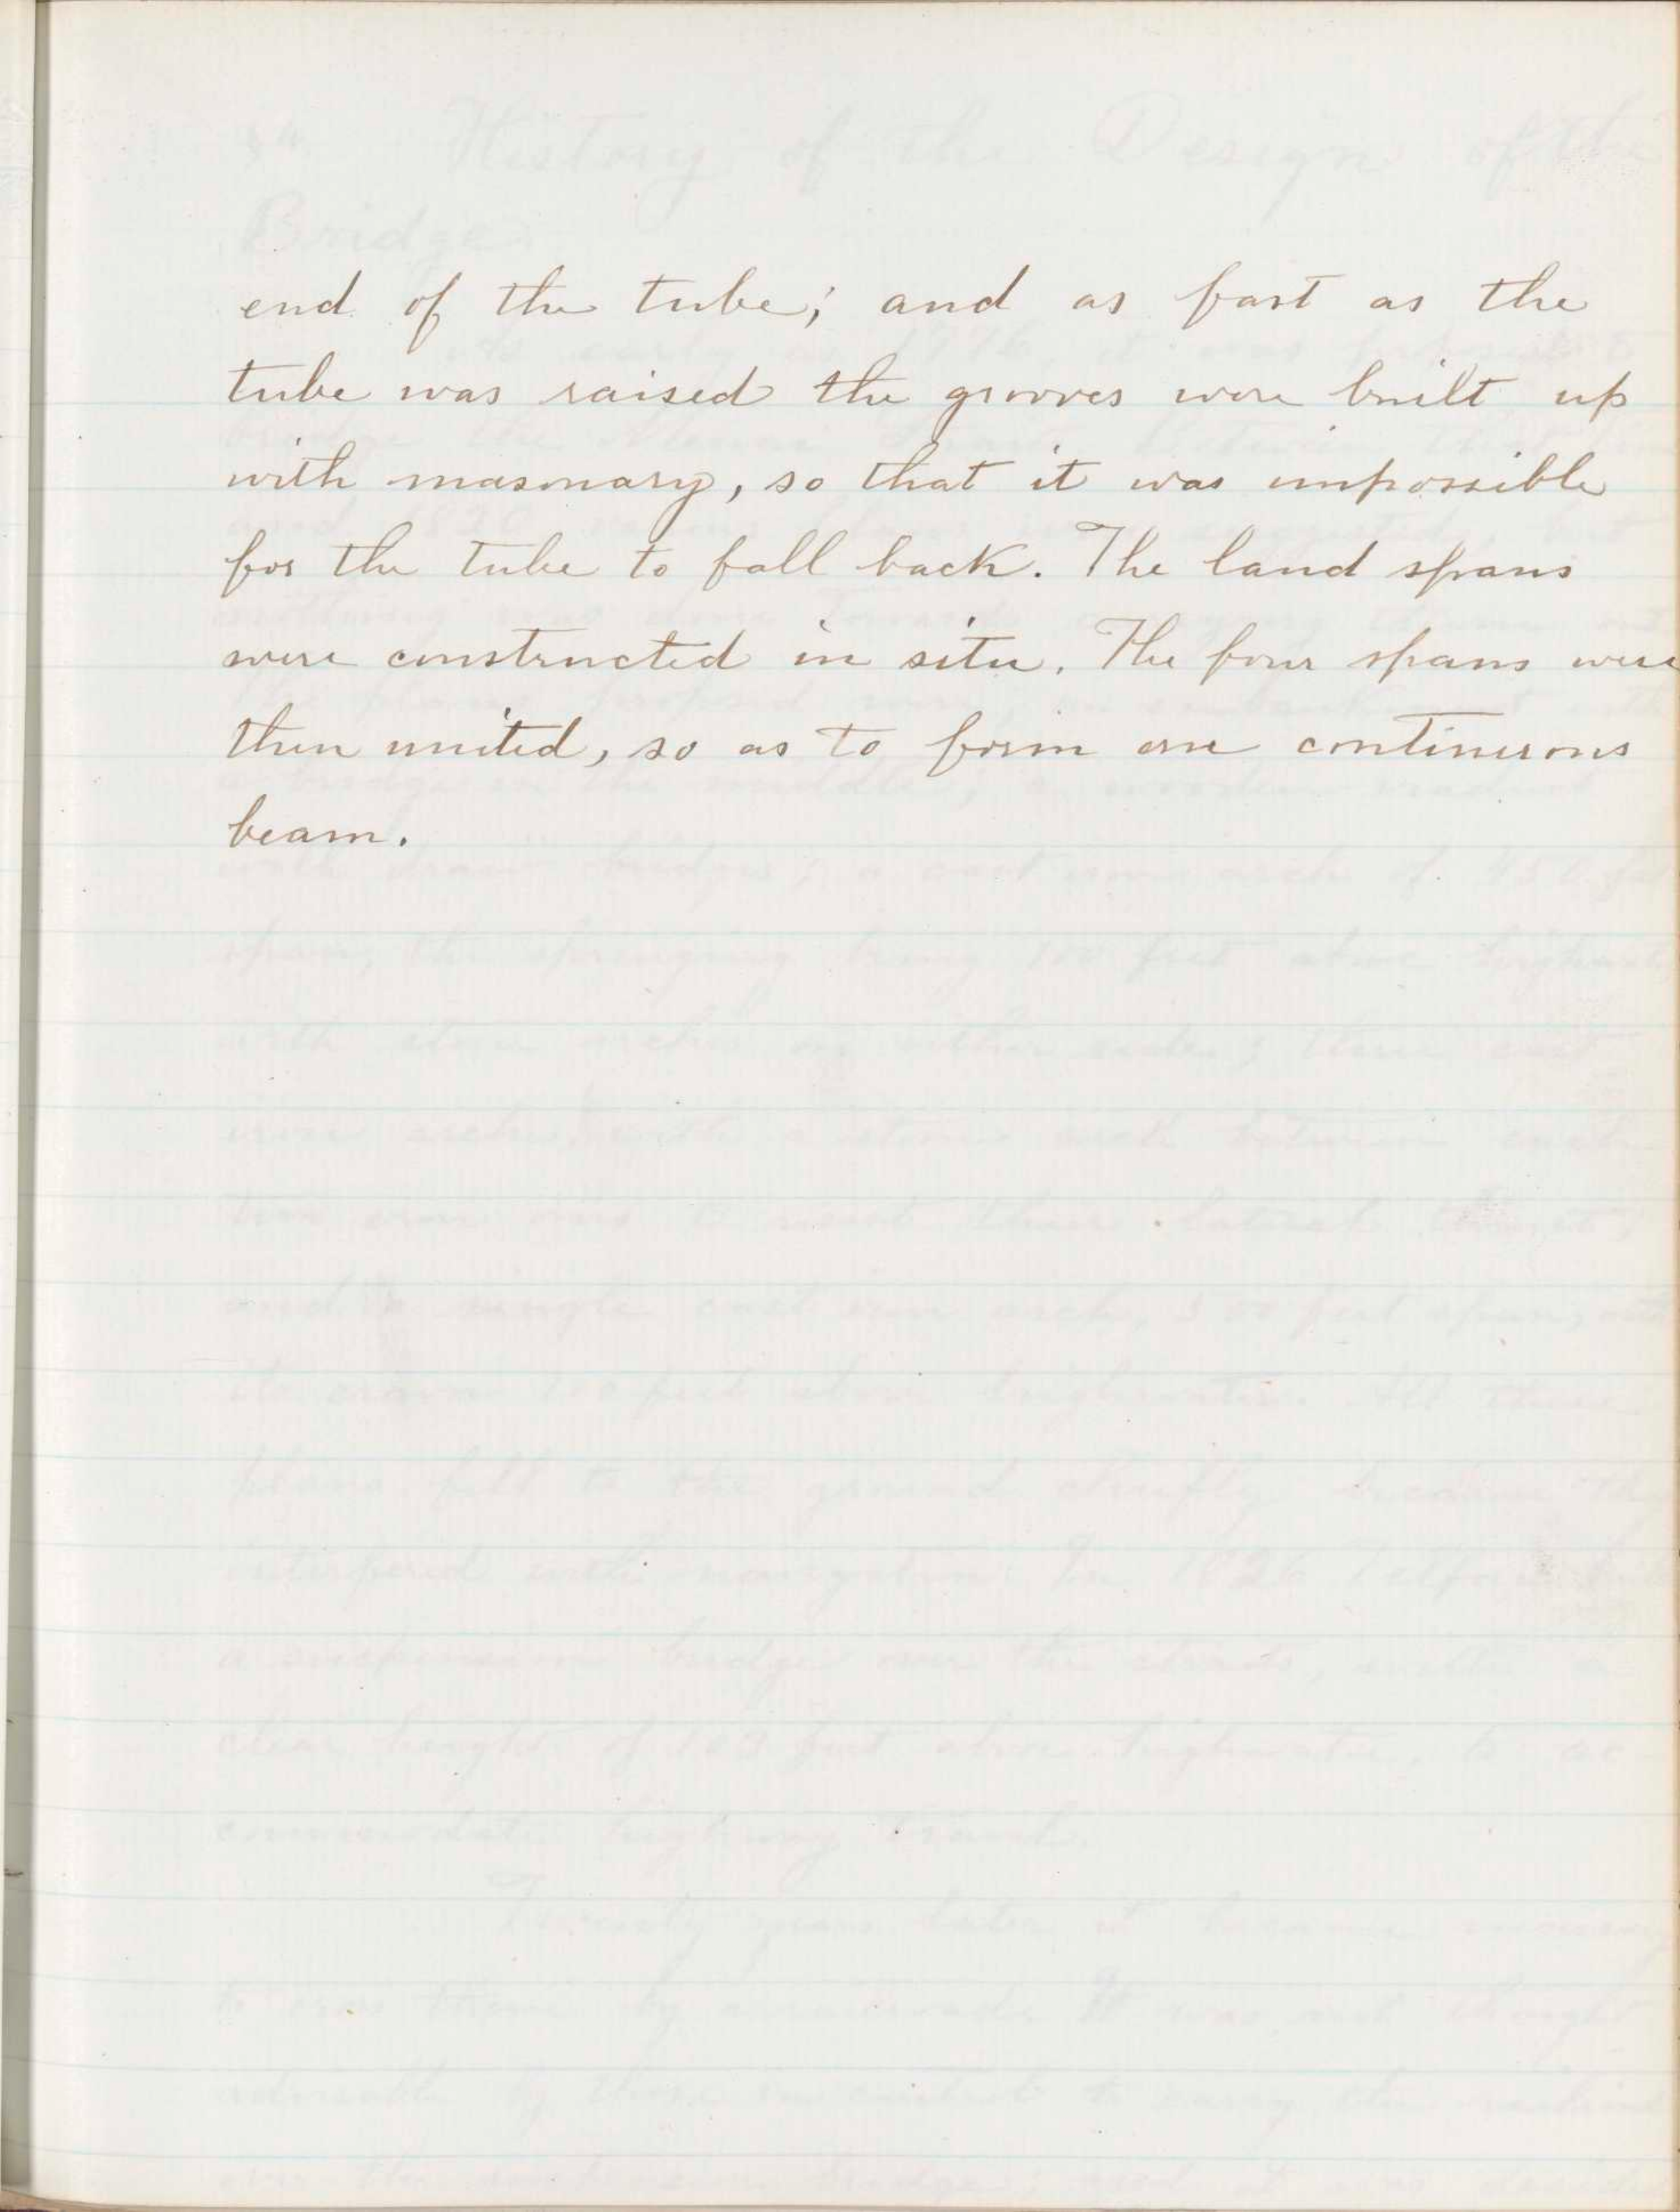 end of the tube; and as fast as the
tube was raised the grooves were built up
with masonary, so that it was impossible
for the tube to fall back. The land spans
were constructed in situ. The four spans were
then united, so as to form one continuous
beam.